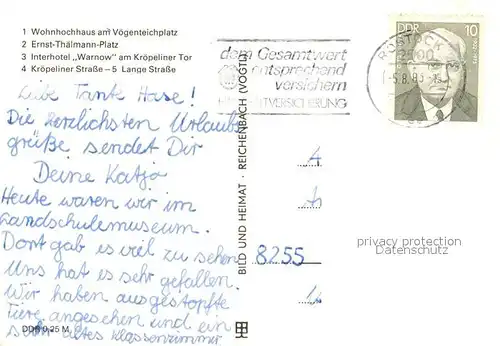 1 Wohnhochhaus am Vögenteichplatz
2 Ernst-Thälmann-Platz
3 Interhotel „Warnow" am Kröpeliner Tor
4 Kröpeliner Straße – 5 Lange Straße
Liebe Tante Hase!
Die herzlichsten Urlaubs
grüße sendet Dir
Deine Katja
Heute waren wir im
Landschulemuseum.
Dort gab es viel zu sehen
Uns hat es sehr gefallen.
Wir haben ausgestopfte
Tiere angesehen und ein
sehr altes Klassenzimmer
DDR 0,25 M
BILD UND HEIMAT · REICHENBACH (VOGTL)
dem Gesamtwert
entsprechend
versichern
ROSTOCK
2500
DDR 10
8255
privacy protection
Datenschutz